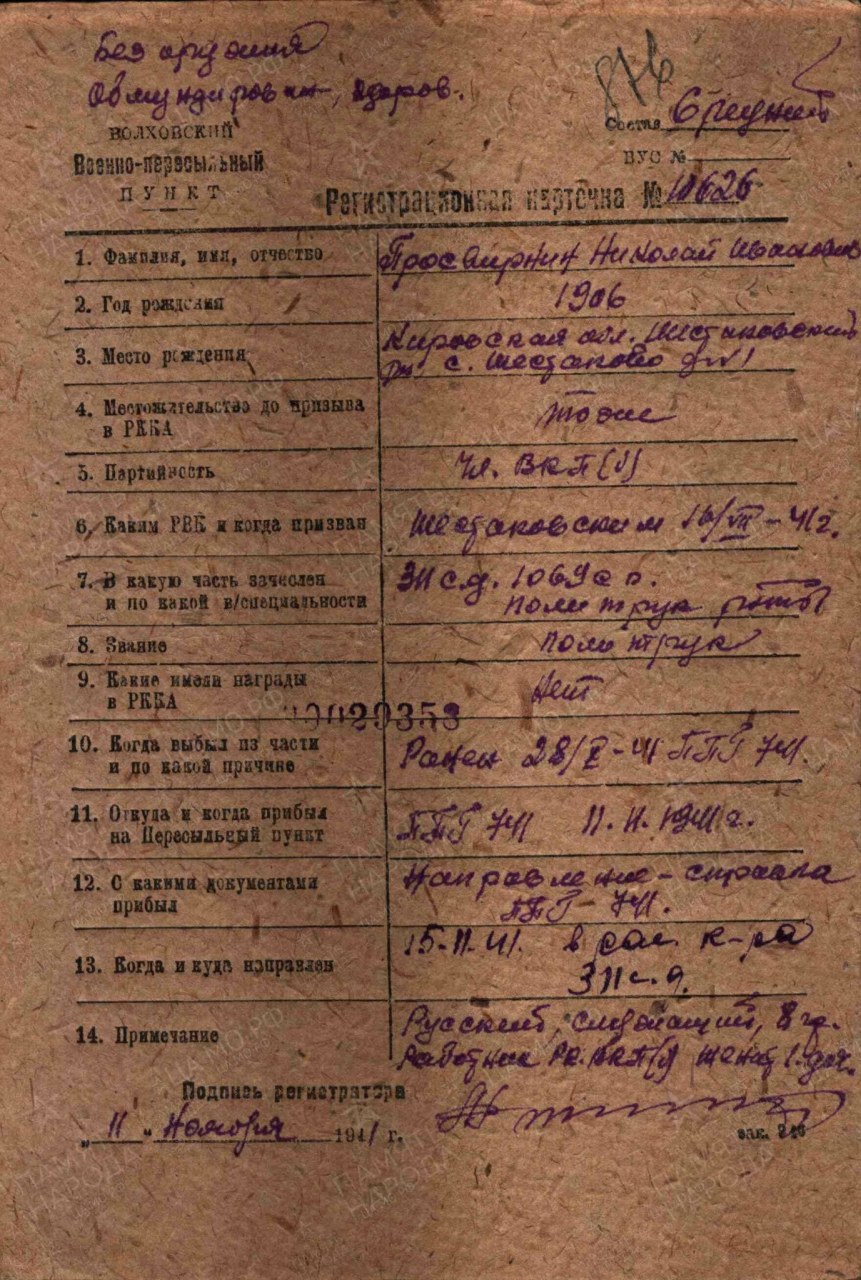 Без оружия
Обмундирован, здоров.
876
ВОЛХОВСКИЙ
Военно-пересыльный
ПУНКТ
Состав Средний
ВУС №
Регистрационная карточка № 10626
1. Фамилия, имя, отчество Просвирнин Николай Иванович
2. Год рождения 1906
3. Место рождения Кировская обл. Шестаковский
рн с. Шестаково
4. Местожительство до призыва
в РККА тоже
5. Партийность Чл. ВКП(б)
6. Каким РВК и когда призван Шестаковским 16/VII-41г.
7. В какую часть зачислен 311 с.д. 1069 с п.
и по какой в/специальности политрук роты
8. Звание политрук
9. Какие имели награды
в РККА Нет
00029353
10. Когда выбыл из части
и по какой причине Ранен 28/X-41 ППГ 741.
11. Откуда и когда прибыл
на Пересыльный пункт ППГ 741 11.11.1941г.
12. С какими документами Направление-справка
прибыл ППГ-741.
13. Когда и куда направлен 15-11-41. в рас. к-ра
311 с.д.
14. Примечание Русский, служащий, 8 гр.
Работник ВКП(б) женат
Подпись регистратора
„11“ Ноября 1941 г.
зак. 246